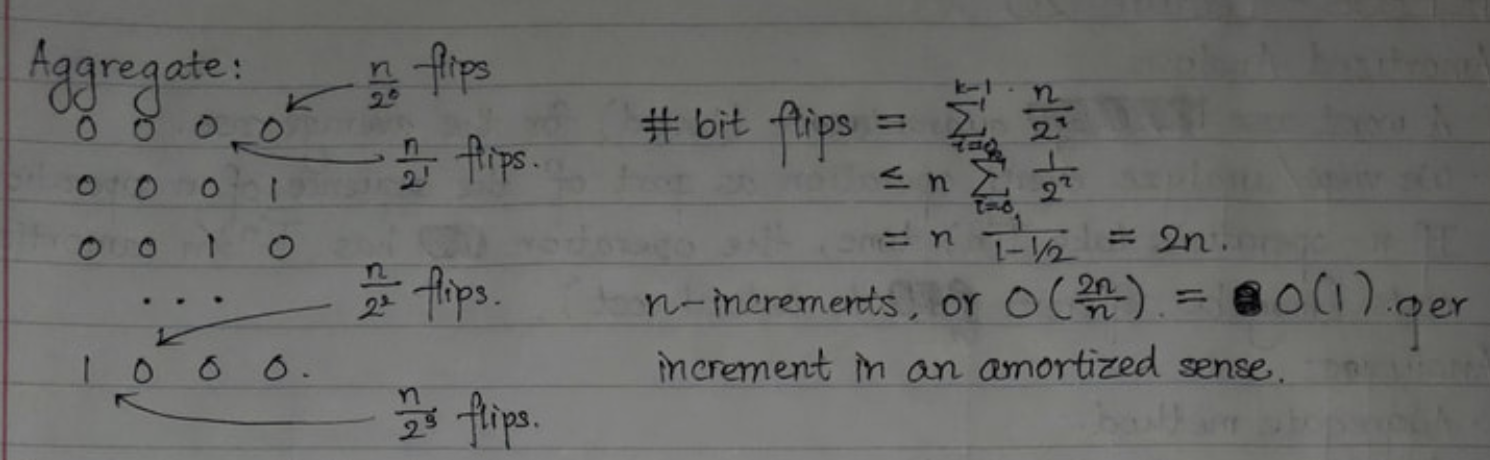 Aggregate:
n/2⁰ flips
0 0 0 0
n/2¹ flips.
0 0 0 1
0 0 1 0
. . .
n/2² flips.
1 0 0 0.
n/2³ flips.
# bit flips = Σ_{i=0}^{k-1} n/2^i
≤ n Σ_{i=0}^{∞} 1/2^i
= n 1/(1-1/2) = 2n.
n-increments, or O(2n/n) = O(1) per
increment in an amortized sense.